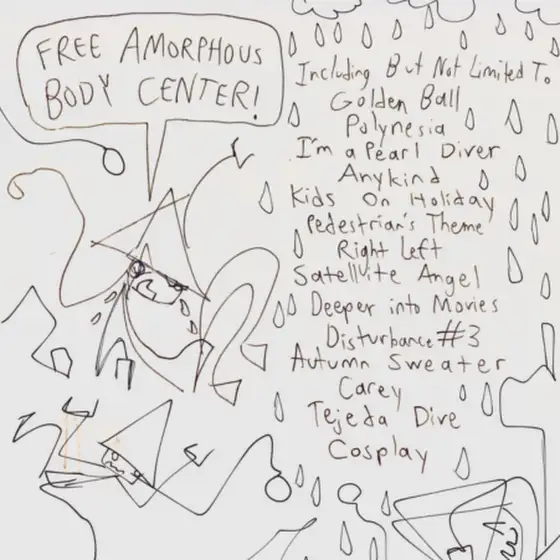 FREE AMORPHOUS
BODY CENTER!
Including But Not Limited To
Golden Ball
Polynesia
I'm a Pearl Diver
Anykind
Kids On Holiday
Pedestrian's Theme
Right Left
Satellite Angel
Deeper into Movies
Disturbance #3
Autumn Sweater
Carey
Tejeda Dive
Cosplay